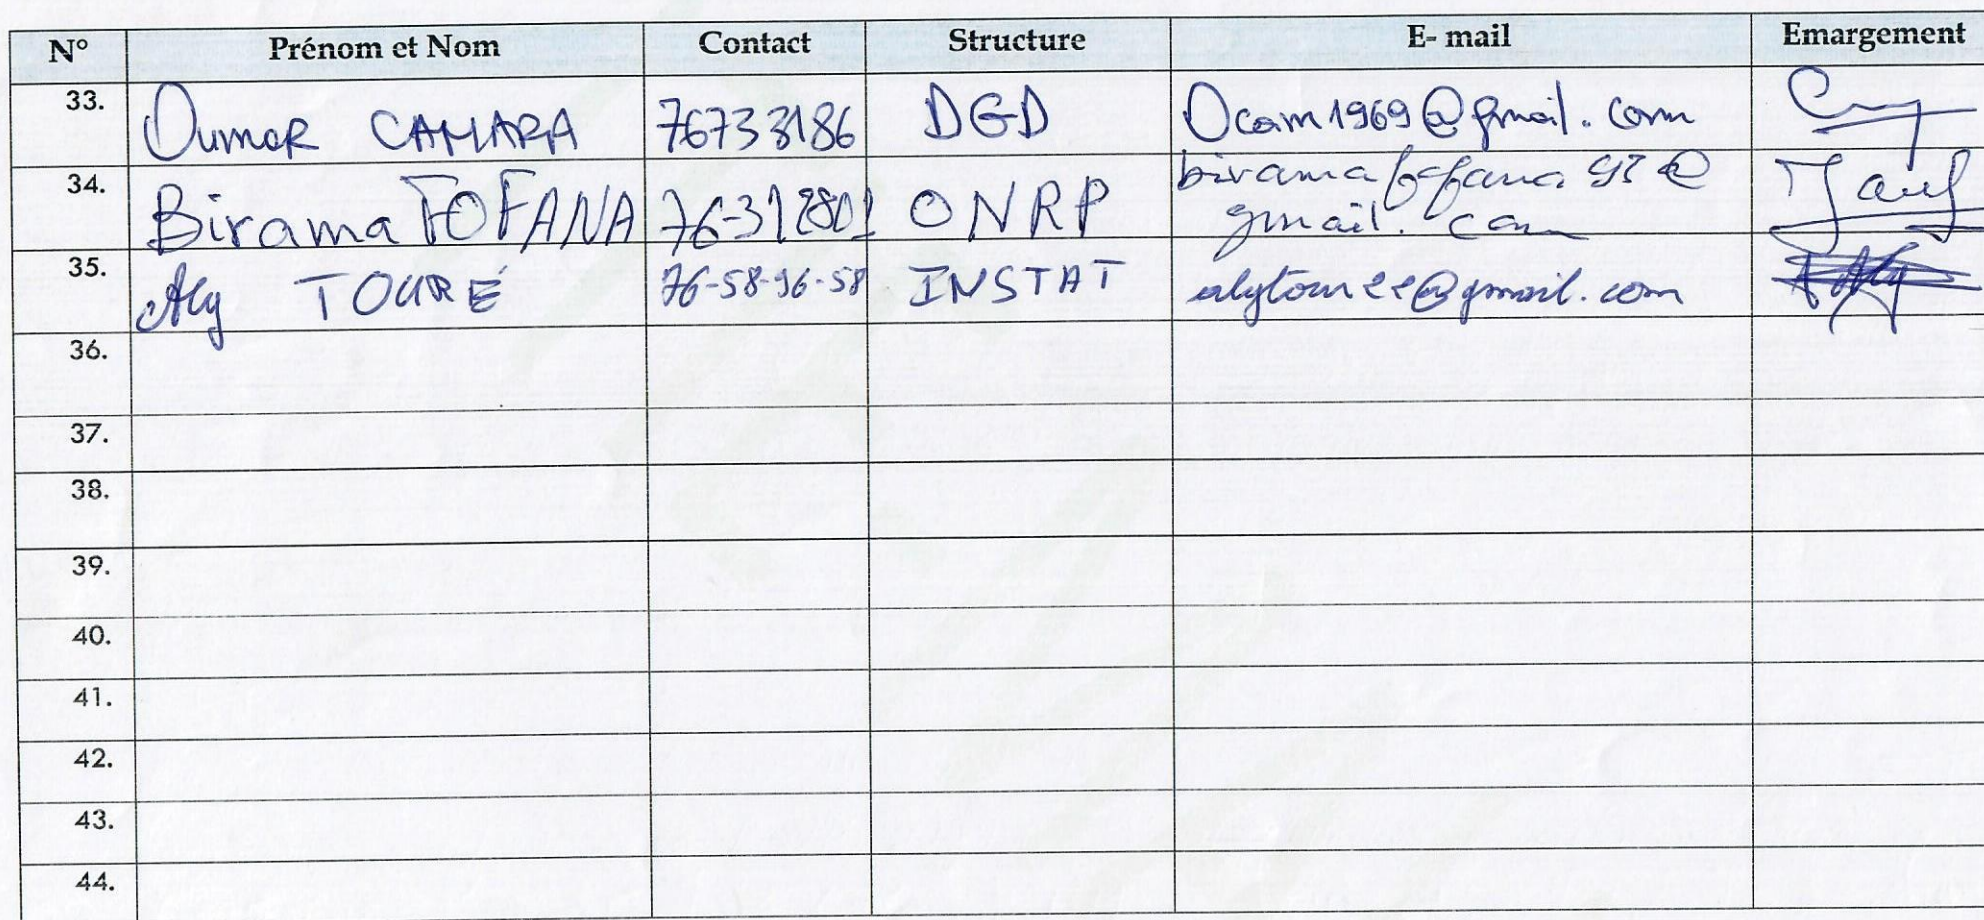 N° Prénom et Nom Contact Structure E- mail Emargement
33. Oumar CAMARA 76733186 DGD Ocam1969@gmail.com
34. Birama FOFANA 76-312801 ONRP birama fofana 97@
gmail. com
35. Aly TOURÉ 76-58-96-58 INSTAT alytouree@gmail.com
36.
37.
38.
39.
40.
41.
42.
43.
44.